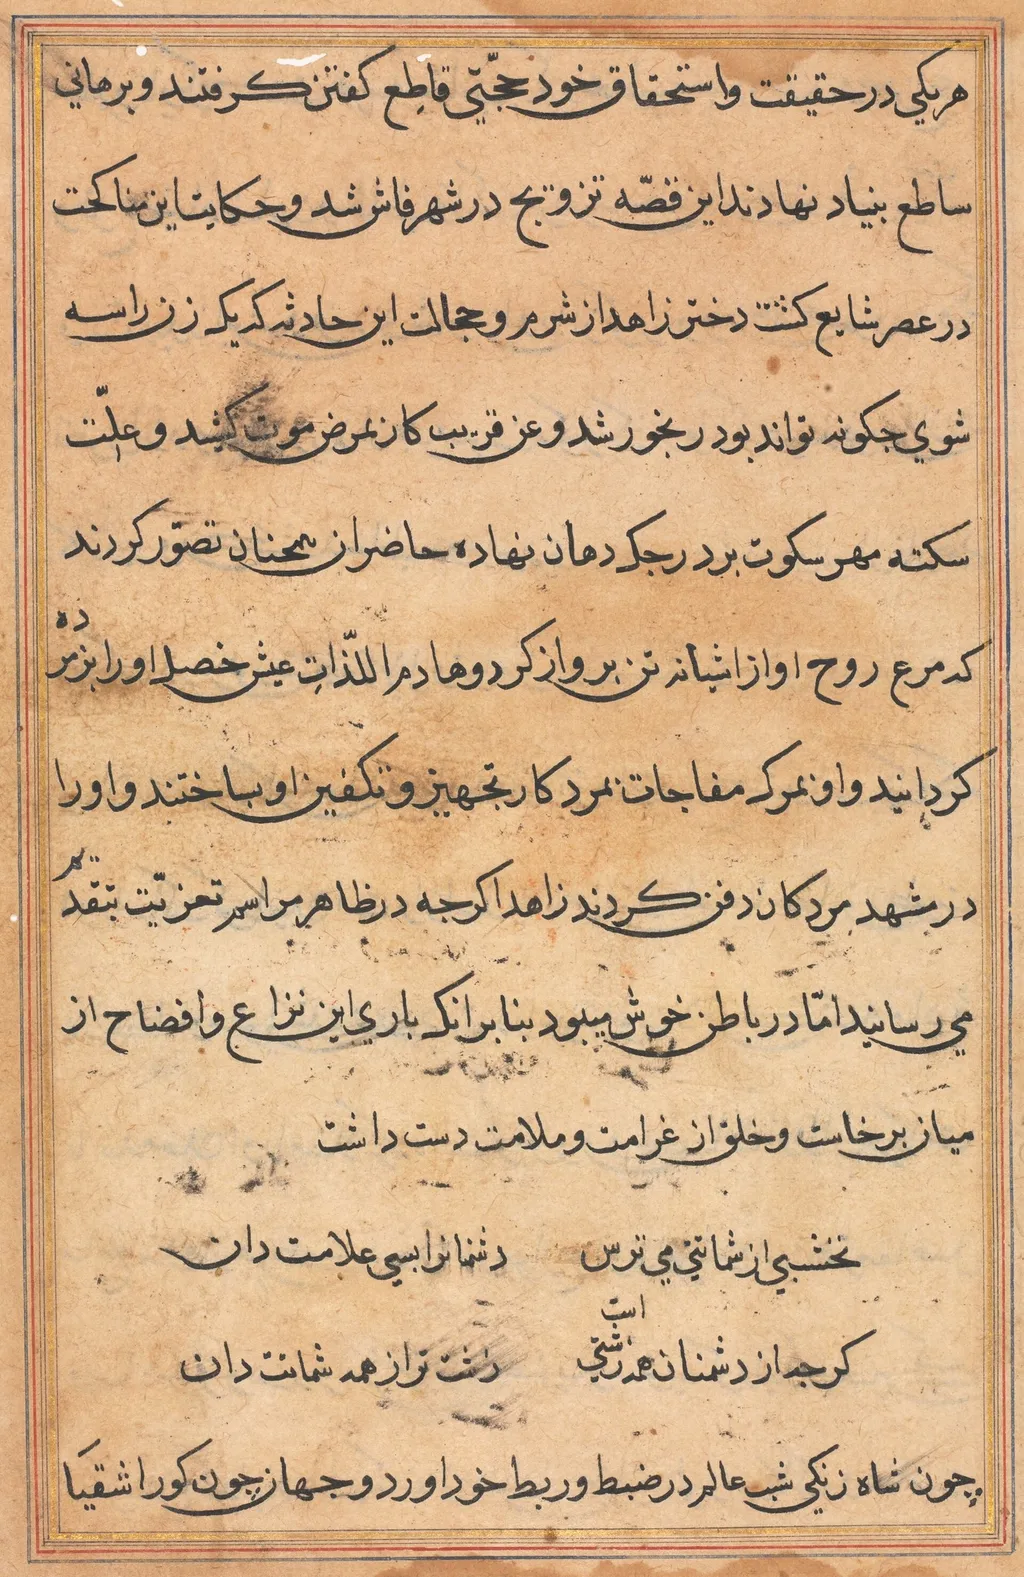 هریکی در حقیقت واستحقاق خود حجّتی قاطع کفتن کرفتند وبرهانی
ساطع بنیاد نهادند این قصّه تزویج در شهر فاش شد وحکایت این مناکحت
در عصر شایع کشت دختر زاهد از شرم وخجالت این حادثه که یک زن را سه
شوی جکونه تواند بود رنجور شد وعن قریب کار بمرض موت کشید وعلّت
سکته مهر سکوت بر درجک دهان نهاده حاضران همچنان تصوّر کردند
که مرغ روح او از اشیانه تن برواز کرد وهادم اللذّات عیش خصل او را بزمرده
کردانید واو بمرک مفاجات بمرد کار تجهیز وتکفین او بساختند واورا
در مشهد مردکان دفن کردند زاهد اکرجه در ظاهر مراسم تعزیّت بتقدیم
می رسانید امّا در باطن خوش میبود بنا برانک باری این نزاع وافضاح از
میان برخاست وخلق از غرامت وملامت دست داشت
نخشبی از شماتتی می ترس دشمنانرا بسی علامت دان
کرجه از دشمنان همه زشتی است زشت تر از همه شماتت دان
چون شاه زنکی شب عالم در ضبط وربط خود اورد وجهان چون کور اشقیا